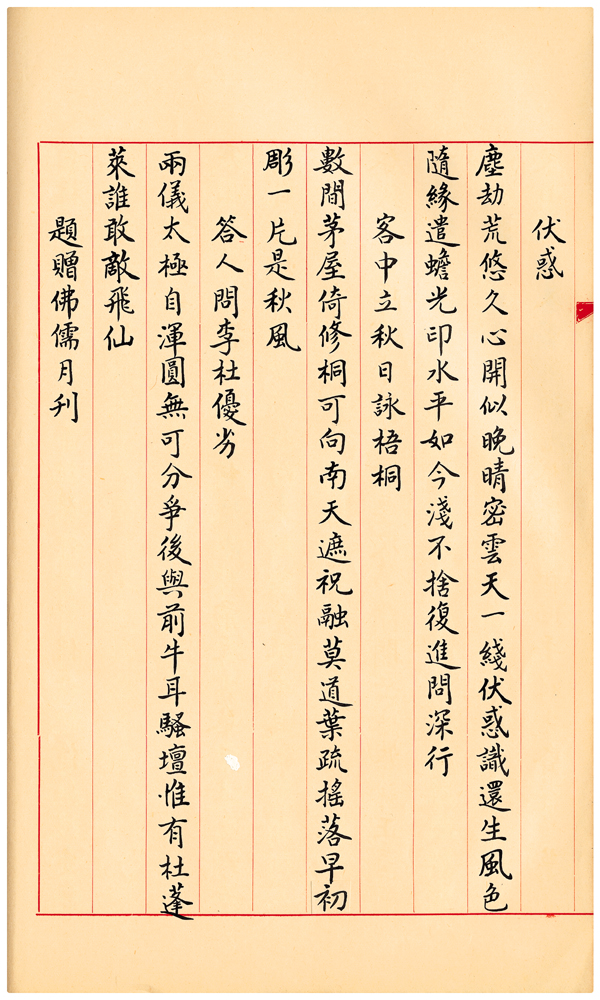 伏惑
塵劫荒悠久心開似晚晴密雲天一綫伏惑識還生風色
隨緣遣蟾光印水平如今淺不捨復進問深行
客中立秋日詠梧桐
數間茅屋倚修桐可向南天遮祝融莫道葉疏搖落早初
彫一片是秋風
答人問李杜優劣
兩儀太極自渾圓無可分爭後與前牛耳騷壇惟有杜蓬
萊誰敢敵飛仙
題贈佛儒月刊